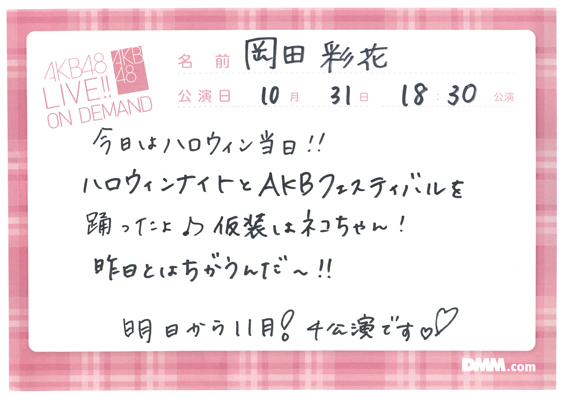 AKB48
LIVE!!
ON DEMAND
AKB
48
名前 岡田彩花
公演日 10月 31日 18:30 公演
今日はハロウィン当日!!
ハロウィンナイトとAKBフェスティバルを
踊ったよ♪仮装はネコちゃん!
昨日とはちがうんだ〜!!
明日から11月! 4公演です♡♡
DMM.com